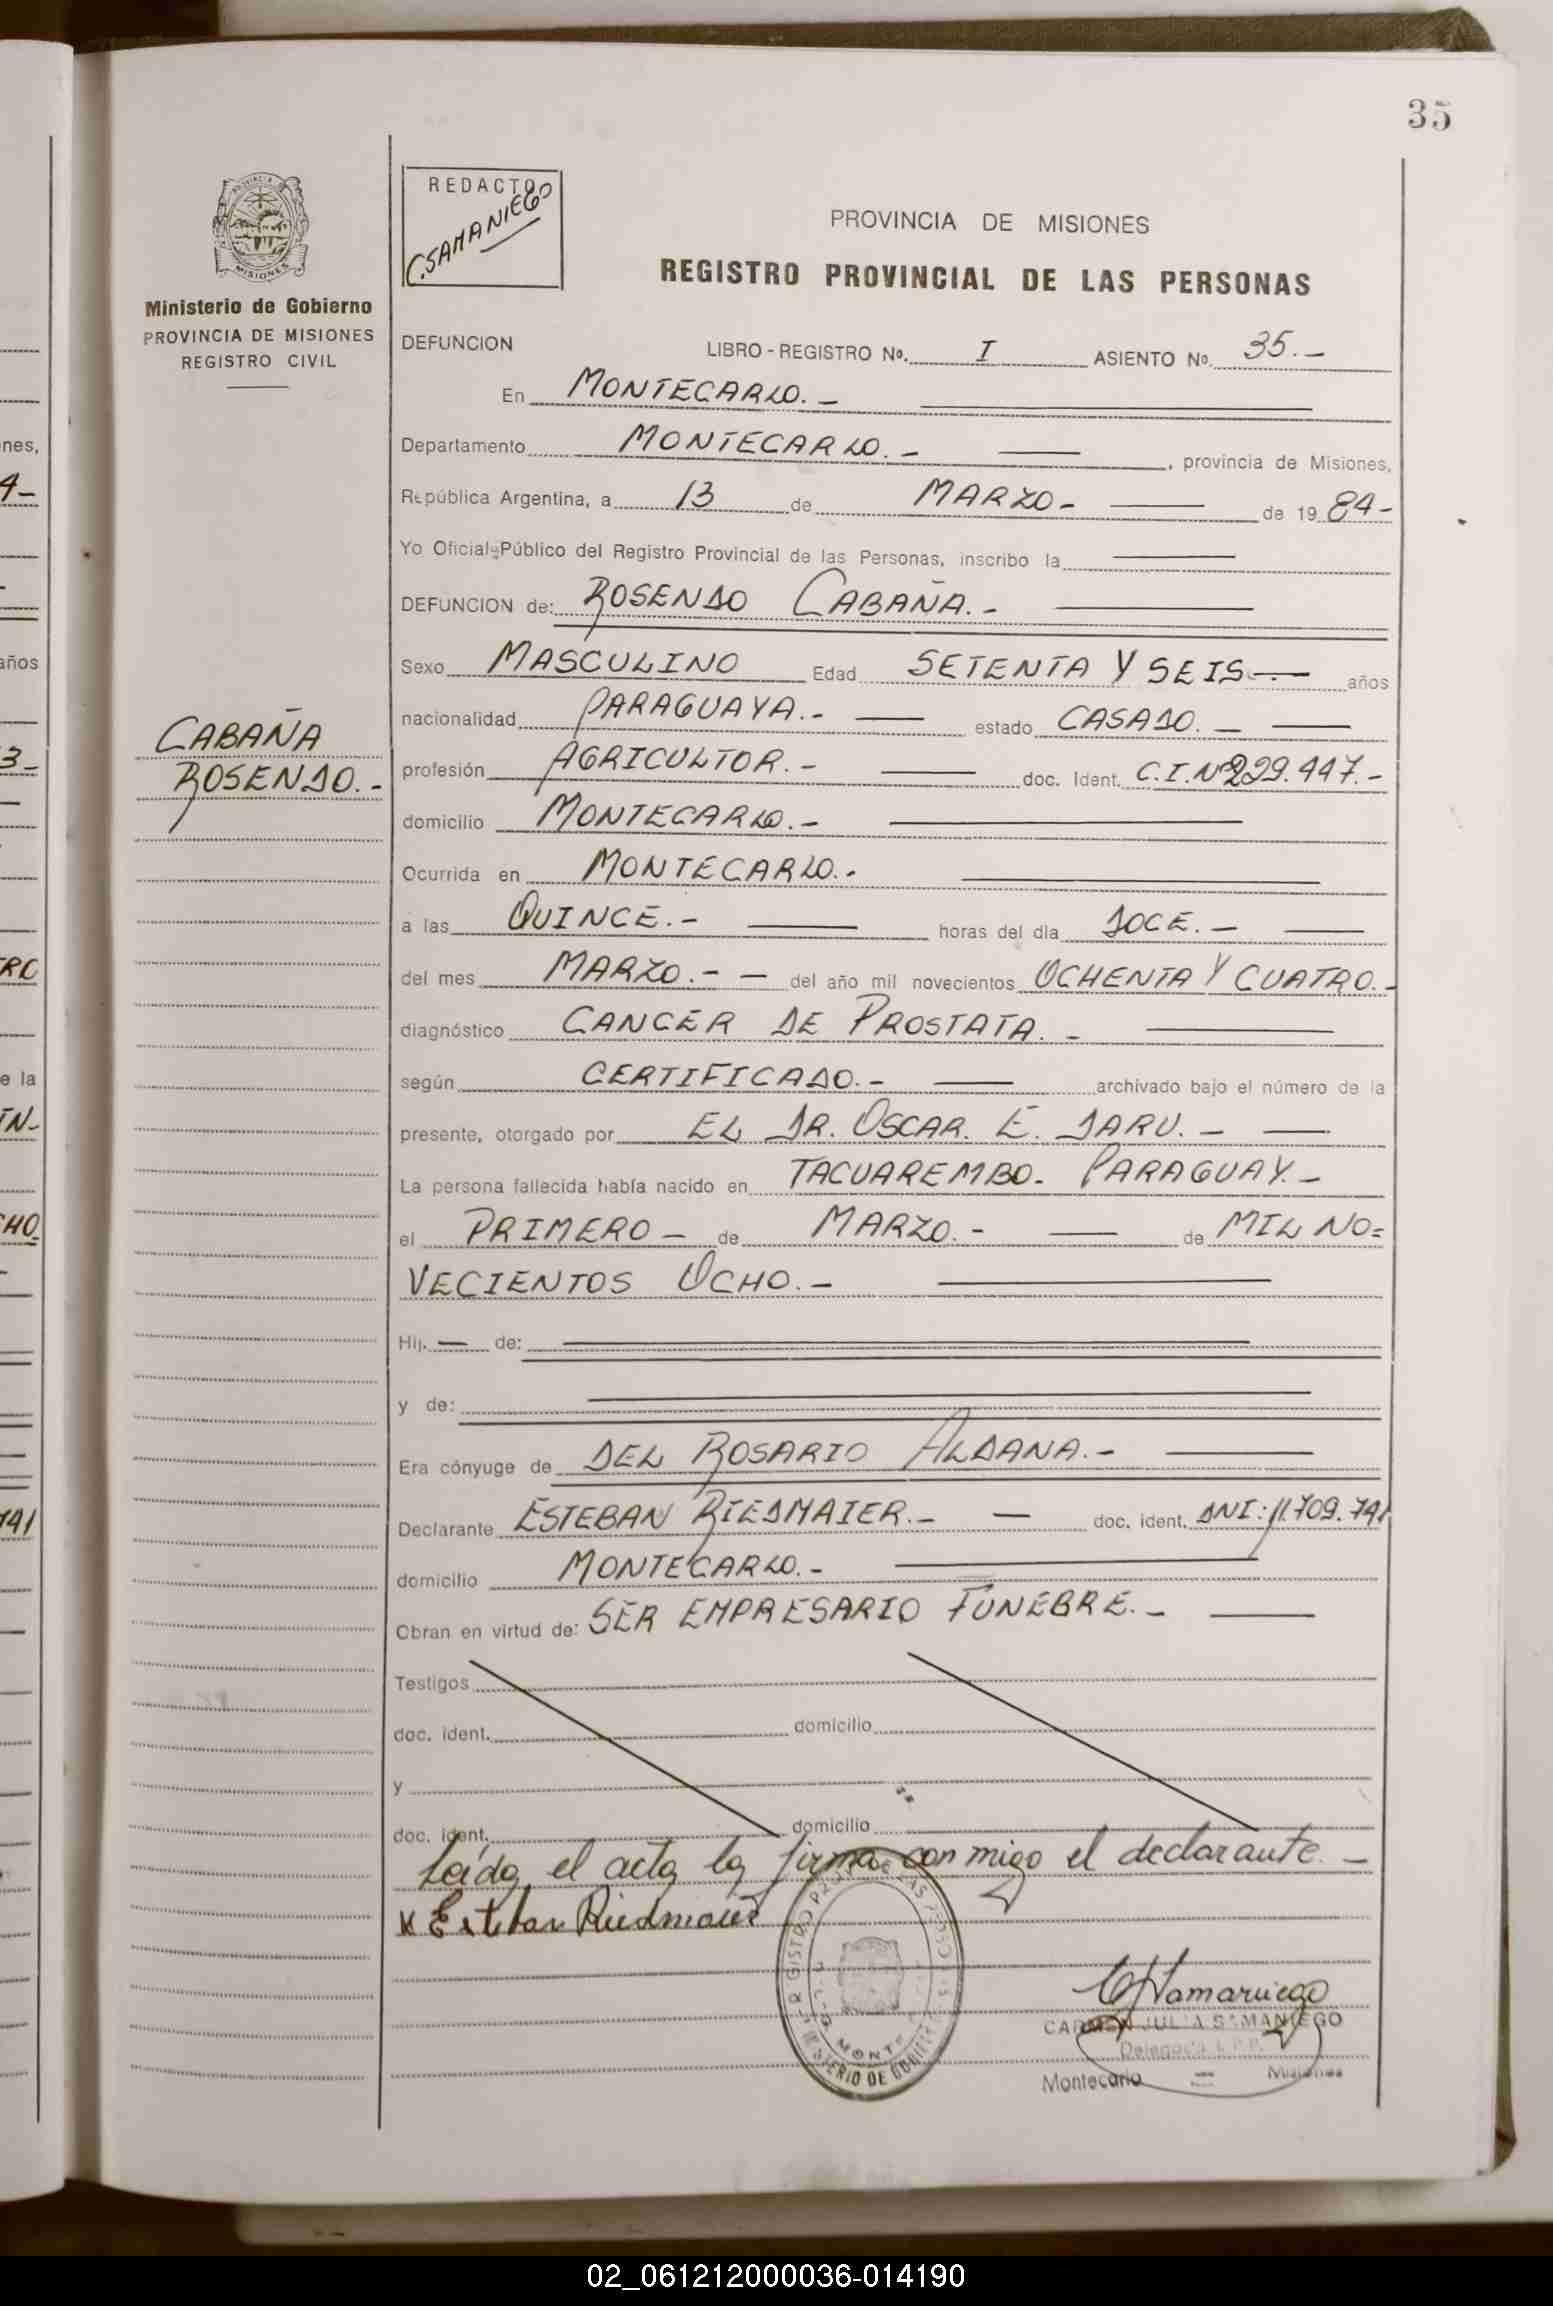 35
REDACTO
C. SAMANIEGO
PROVINCIA DE MISIONES
REGISTRO PROVINCIAL DE LAS PERSONAS
PROVINCIA DE
MISIONES
Ministerio de Gobierno
PROVINCIA DE MISIONES
REGISTRO CIVIL
DEFUNCION LIBRO - REGISTRO Nº. I ASIENTO Nº. 35.-
En MONTECARLO.-
Departamento MONTECARLO.- , provincia de Misiones,
República Argentina, a 13 de MARZO- de 19 84-
Yo Oficial Público del Registro Provincial de las Personas, inscribo la
DEFUNCION de: ROSENDO CABAÑA.-
Sexo MASCULINO Edad SETENTA Y SEIS.- años
nacionalidad PARAGUAYA.- estado CASADO.-
profesión AGRICULTOR.- doc. Ident. C.I.Nº 229.447.-
CABAÑA
ROSENDO.-
domicilio MONTECARLO.-
Ocurrida en MONTECARLO.-
a las QUINCE.- horas del día DOCE.-
del mes MARZO.- - del año mil novecientos OCHENTA Y CUATRO.-
diagnóstico CANCER DE PROSTATA.-
según CERTIFICADO.- archivado bajo el número de la
presente, otorgado por EL DR. OSCAR. E. DARU.-
La persona fallecida había nacido en TACUAREMBO- PARAGUAY.-
el PRIMERO - de MARZO.- de MIL NO=
VECIENTOS OCHO.-
Hij. de:
y de:
Era cónyuge de DEL ROSARIO ALDANA.-
Declarante ESTEBAN RIEDMAIER.- doc. ident. DNI: 11.709.741
domicilio MONTECARLO.-
Obran en virtud de: SER EMPRESARIO FUNEBRE.-
Testigos
doc. ident. domicilio
y
doc. ident. domicilio
Leída el acta la firma con migo el declarante.-
x Esteban Riedmaier
CJSamaniego
CARMEN JULIA SAMANIEGO
Montecarlo Misiones
MINISTERIO DE GOBIERNO
nes,
4-
años
3-
e la
IN-
CHO.
741
02_061212000036-014190